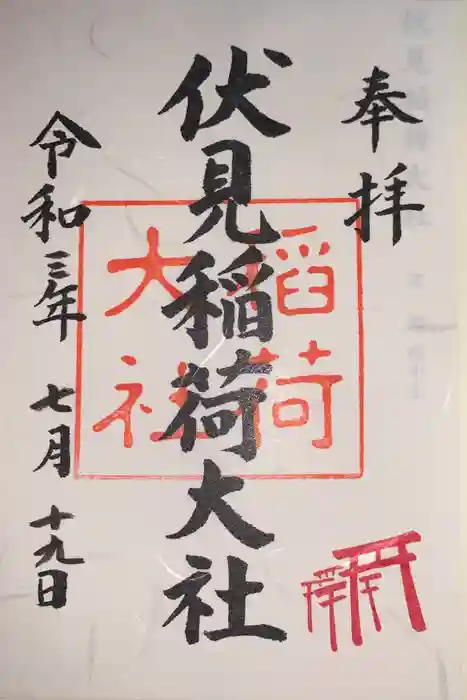 奉拝
伏見稲荷大社
稲荷
大社
令和三年 七月 十九日